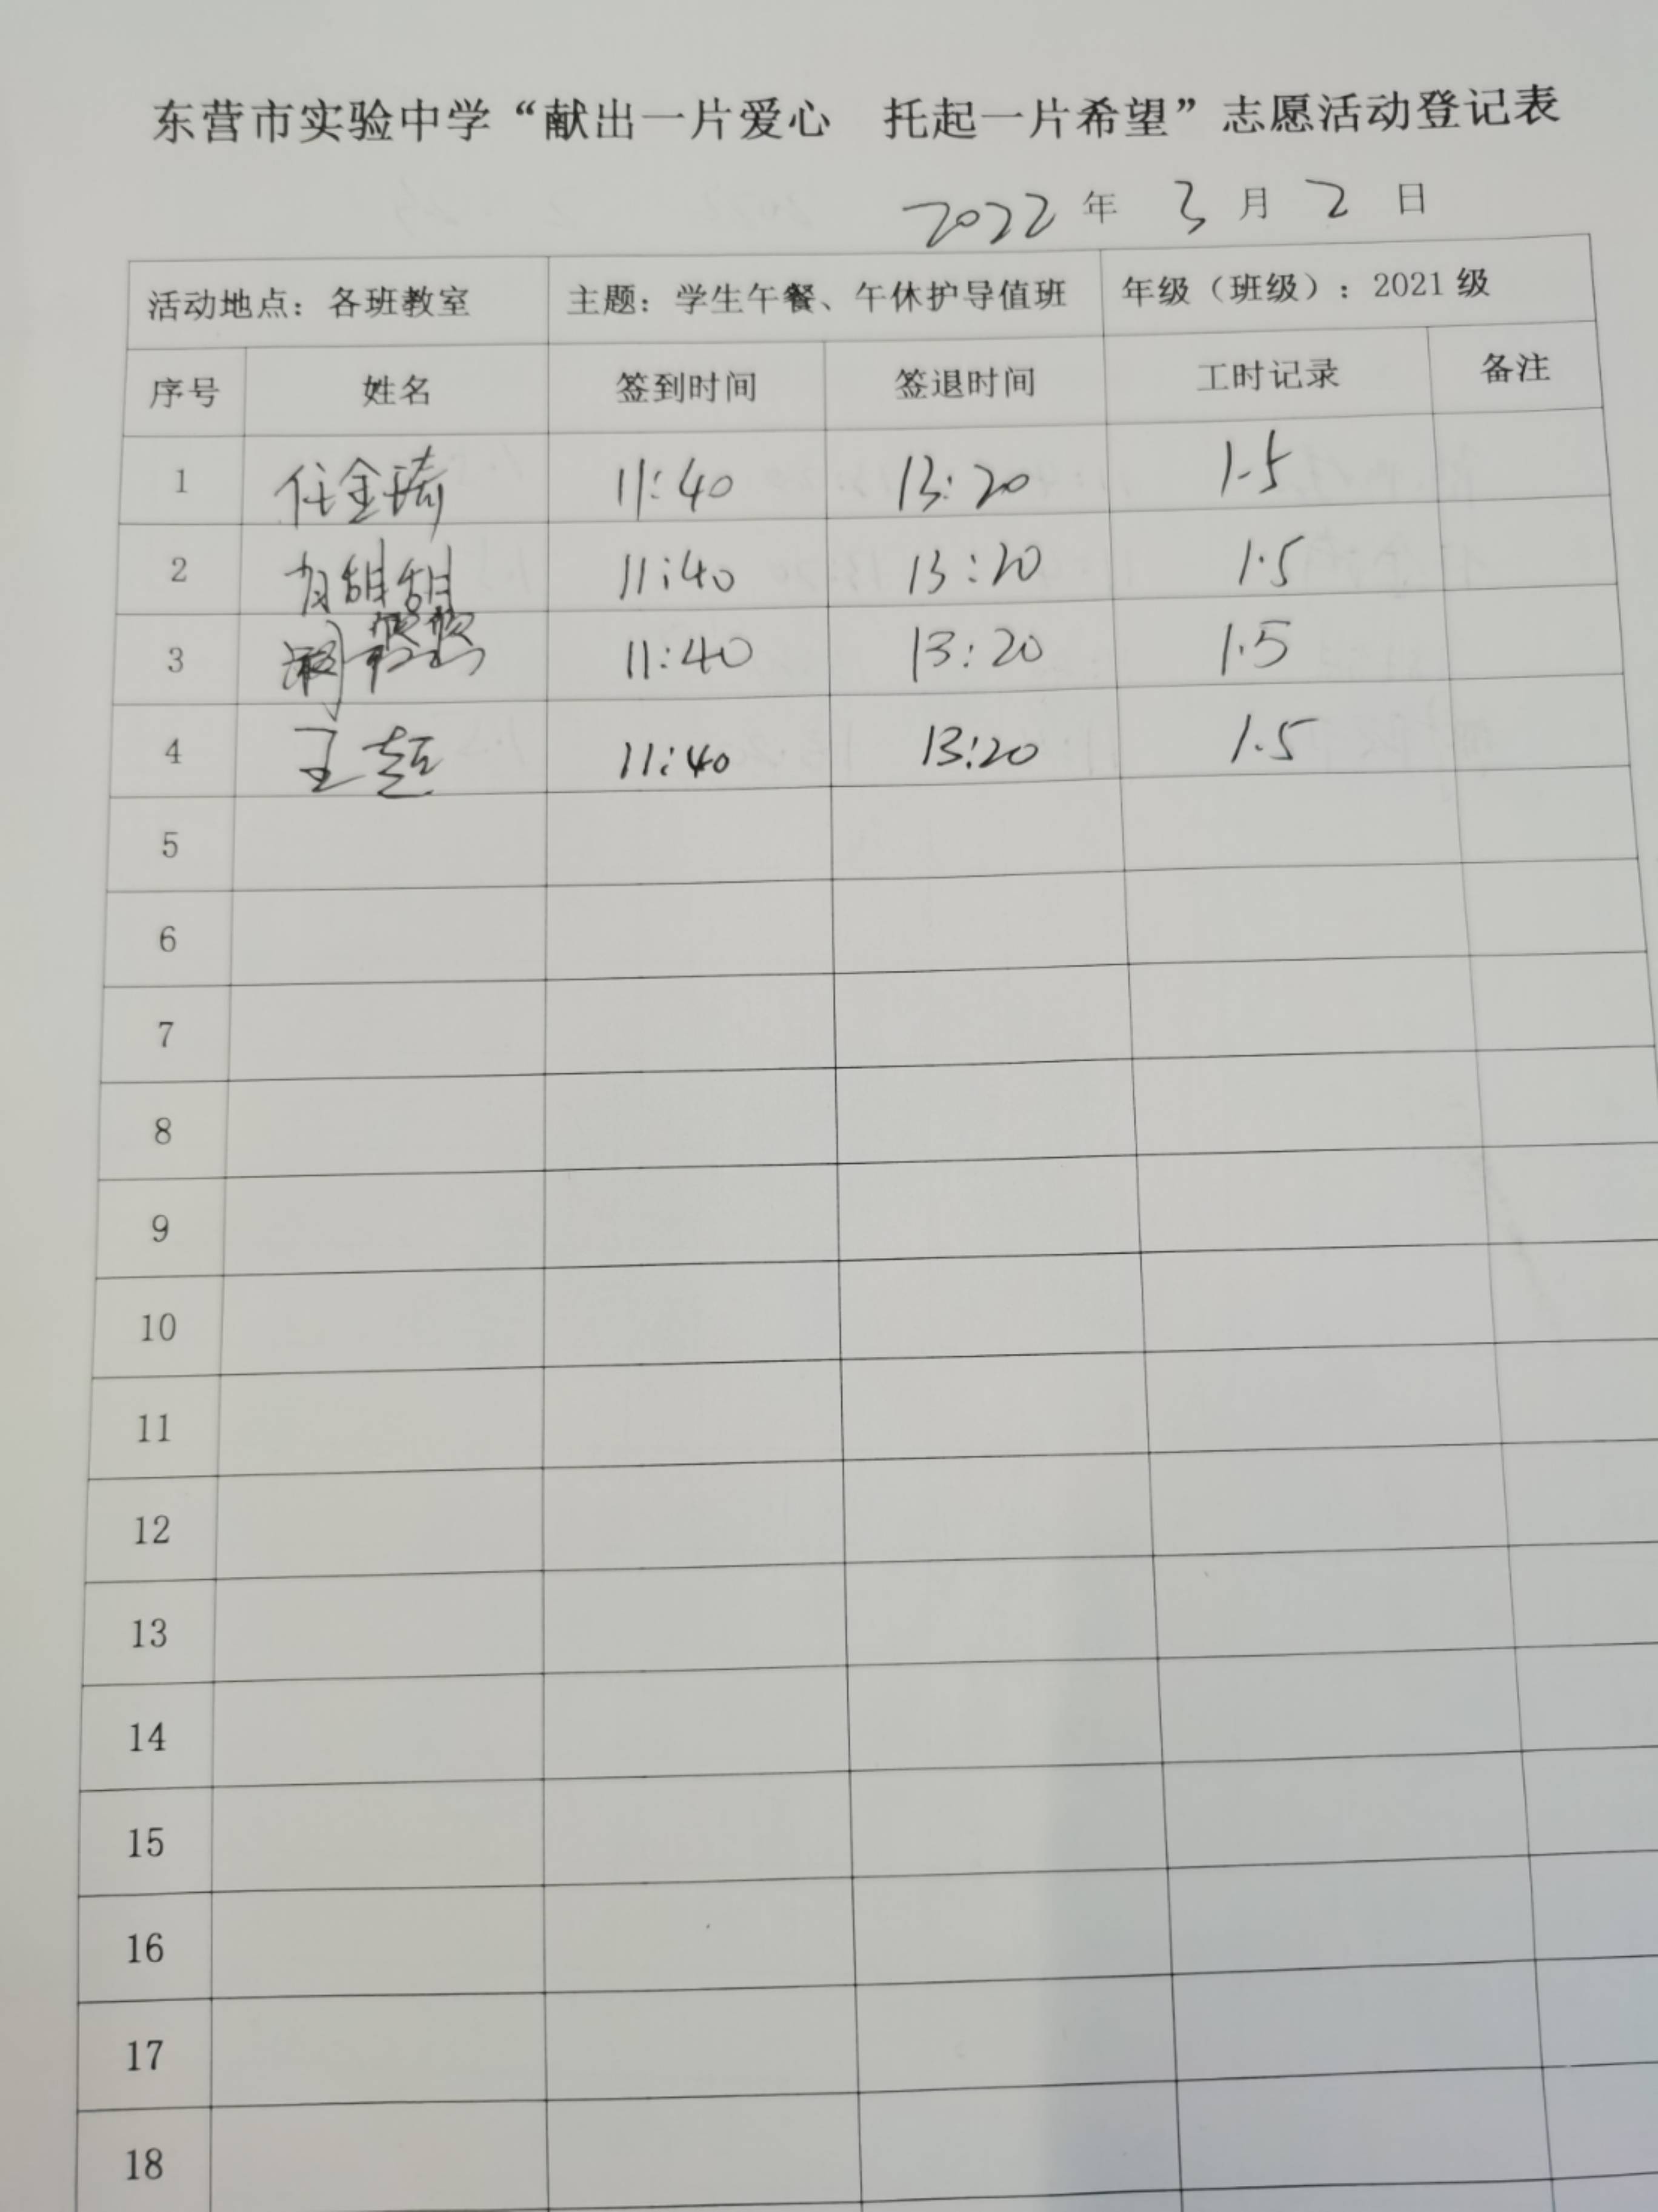 东营市实验中学“献出一片爱心 托起一片希望”志愿活动登记表
2022年3月2日
活动地点：各班教室 主题：学生午餐、午休护导值班 年级（班级）：2021级
序号 姓名 签到时间 签退时间 工时记录 备注
1 任金琦 11:40 13:20 1.5
2 11:40 13:20 1.5
3 11:40 13:20 1.5
4 王超 11:40 13:20 1.5
5
6
7
8
9
10
11
12
13
14
15
16
17
18